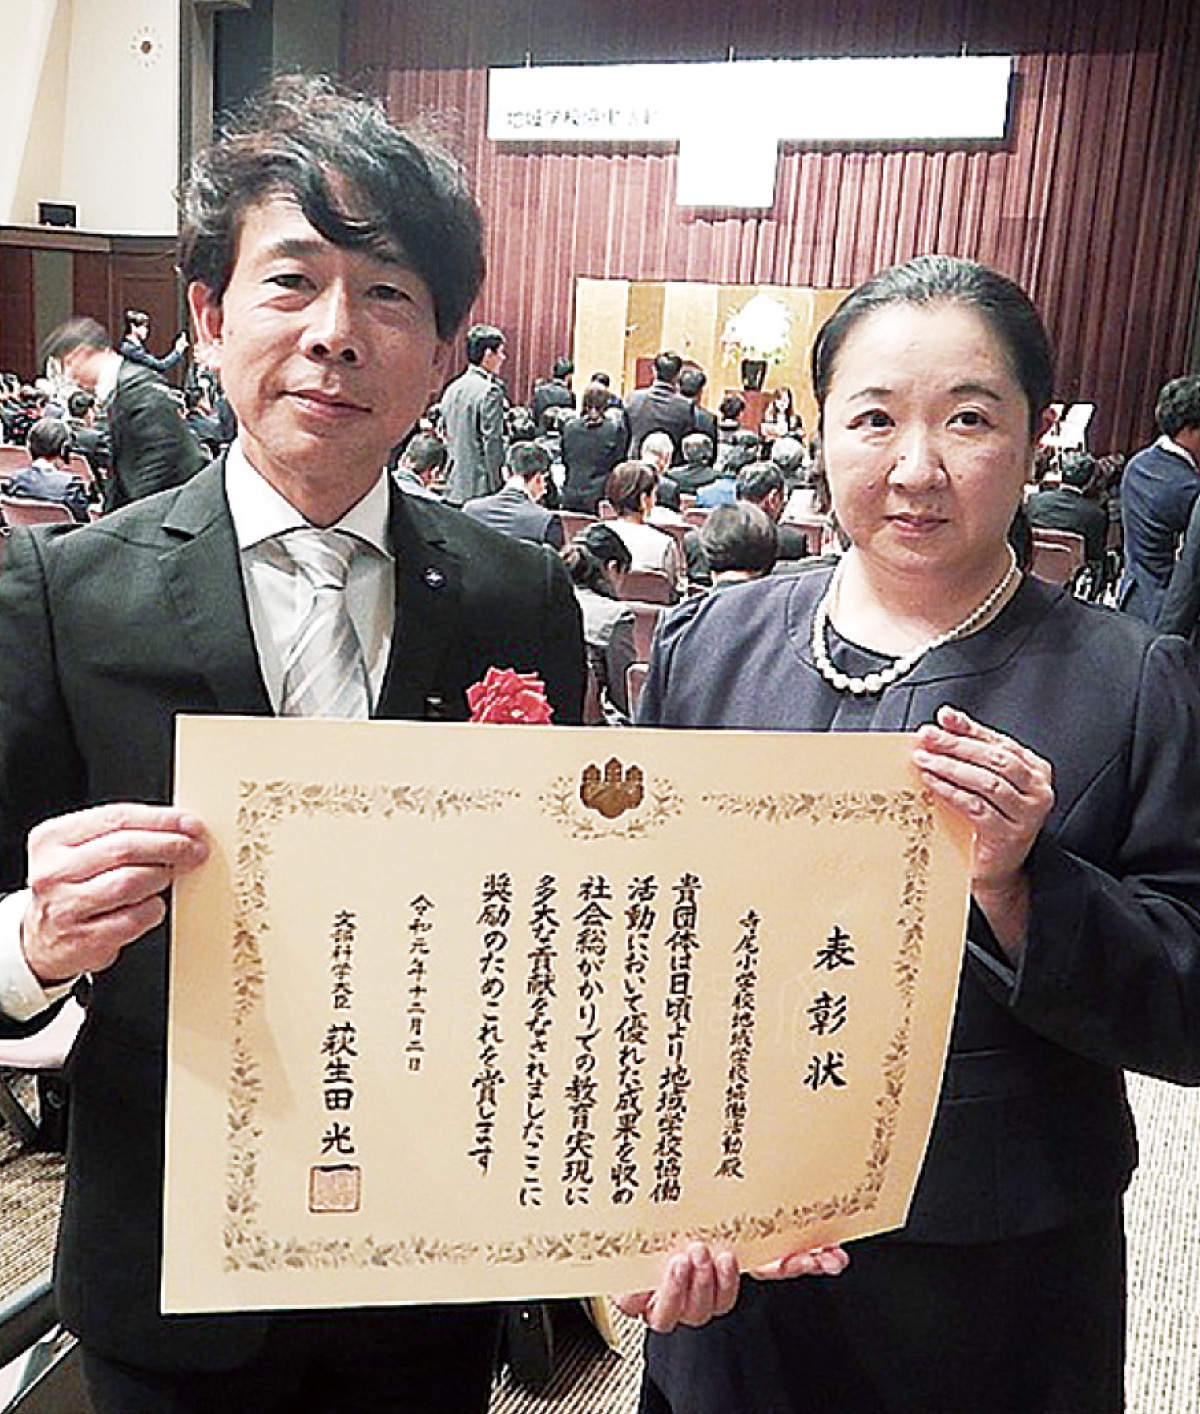 地域学校協働活動
表彰状
寺尾小学校地域学校協働活動殿
貴団体は日頃より地域学校協働
活動において優れた成果を収め
社会総がかりでの教育実現に
多大な貢献をなされましたここに
奨励のためこれを賞します
令和元年十二月二日
文部科学大臣 萩生田光一